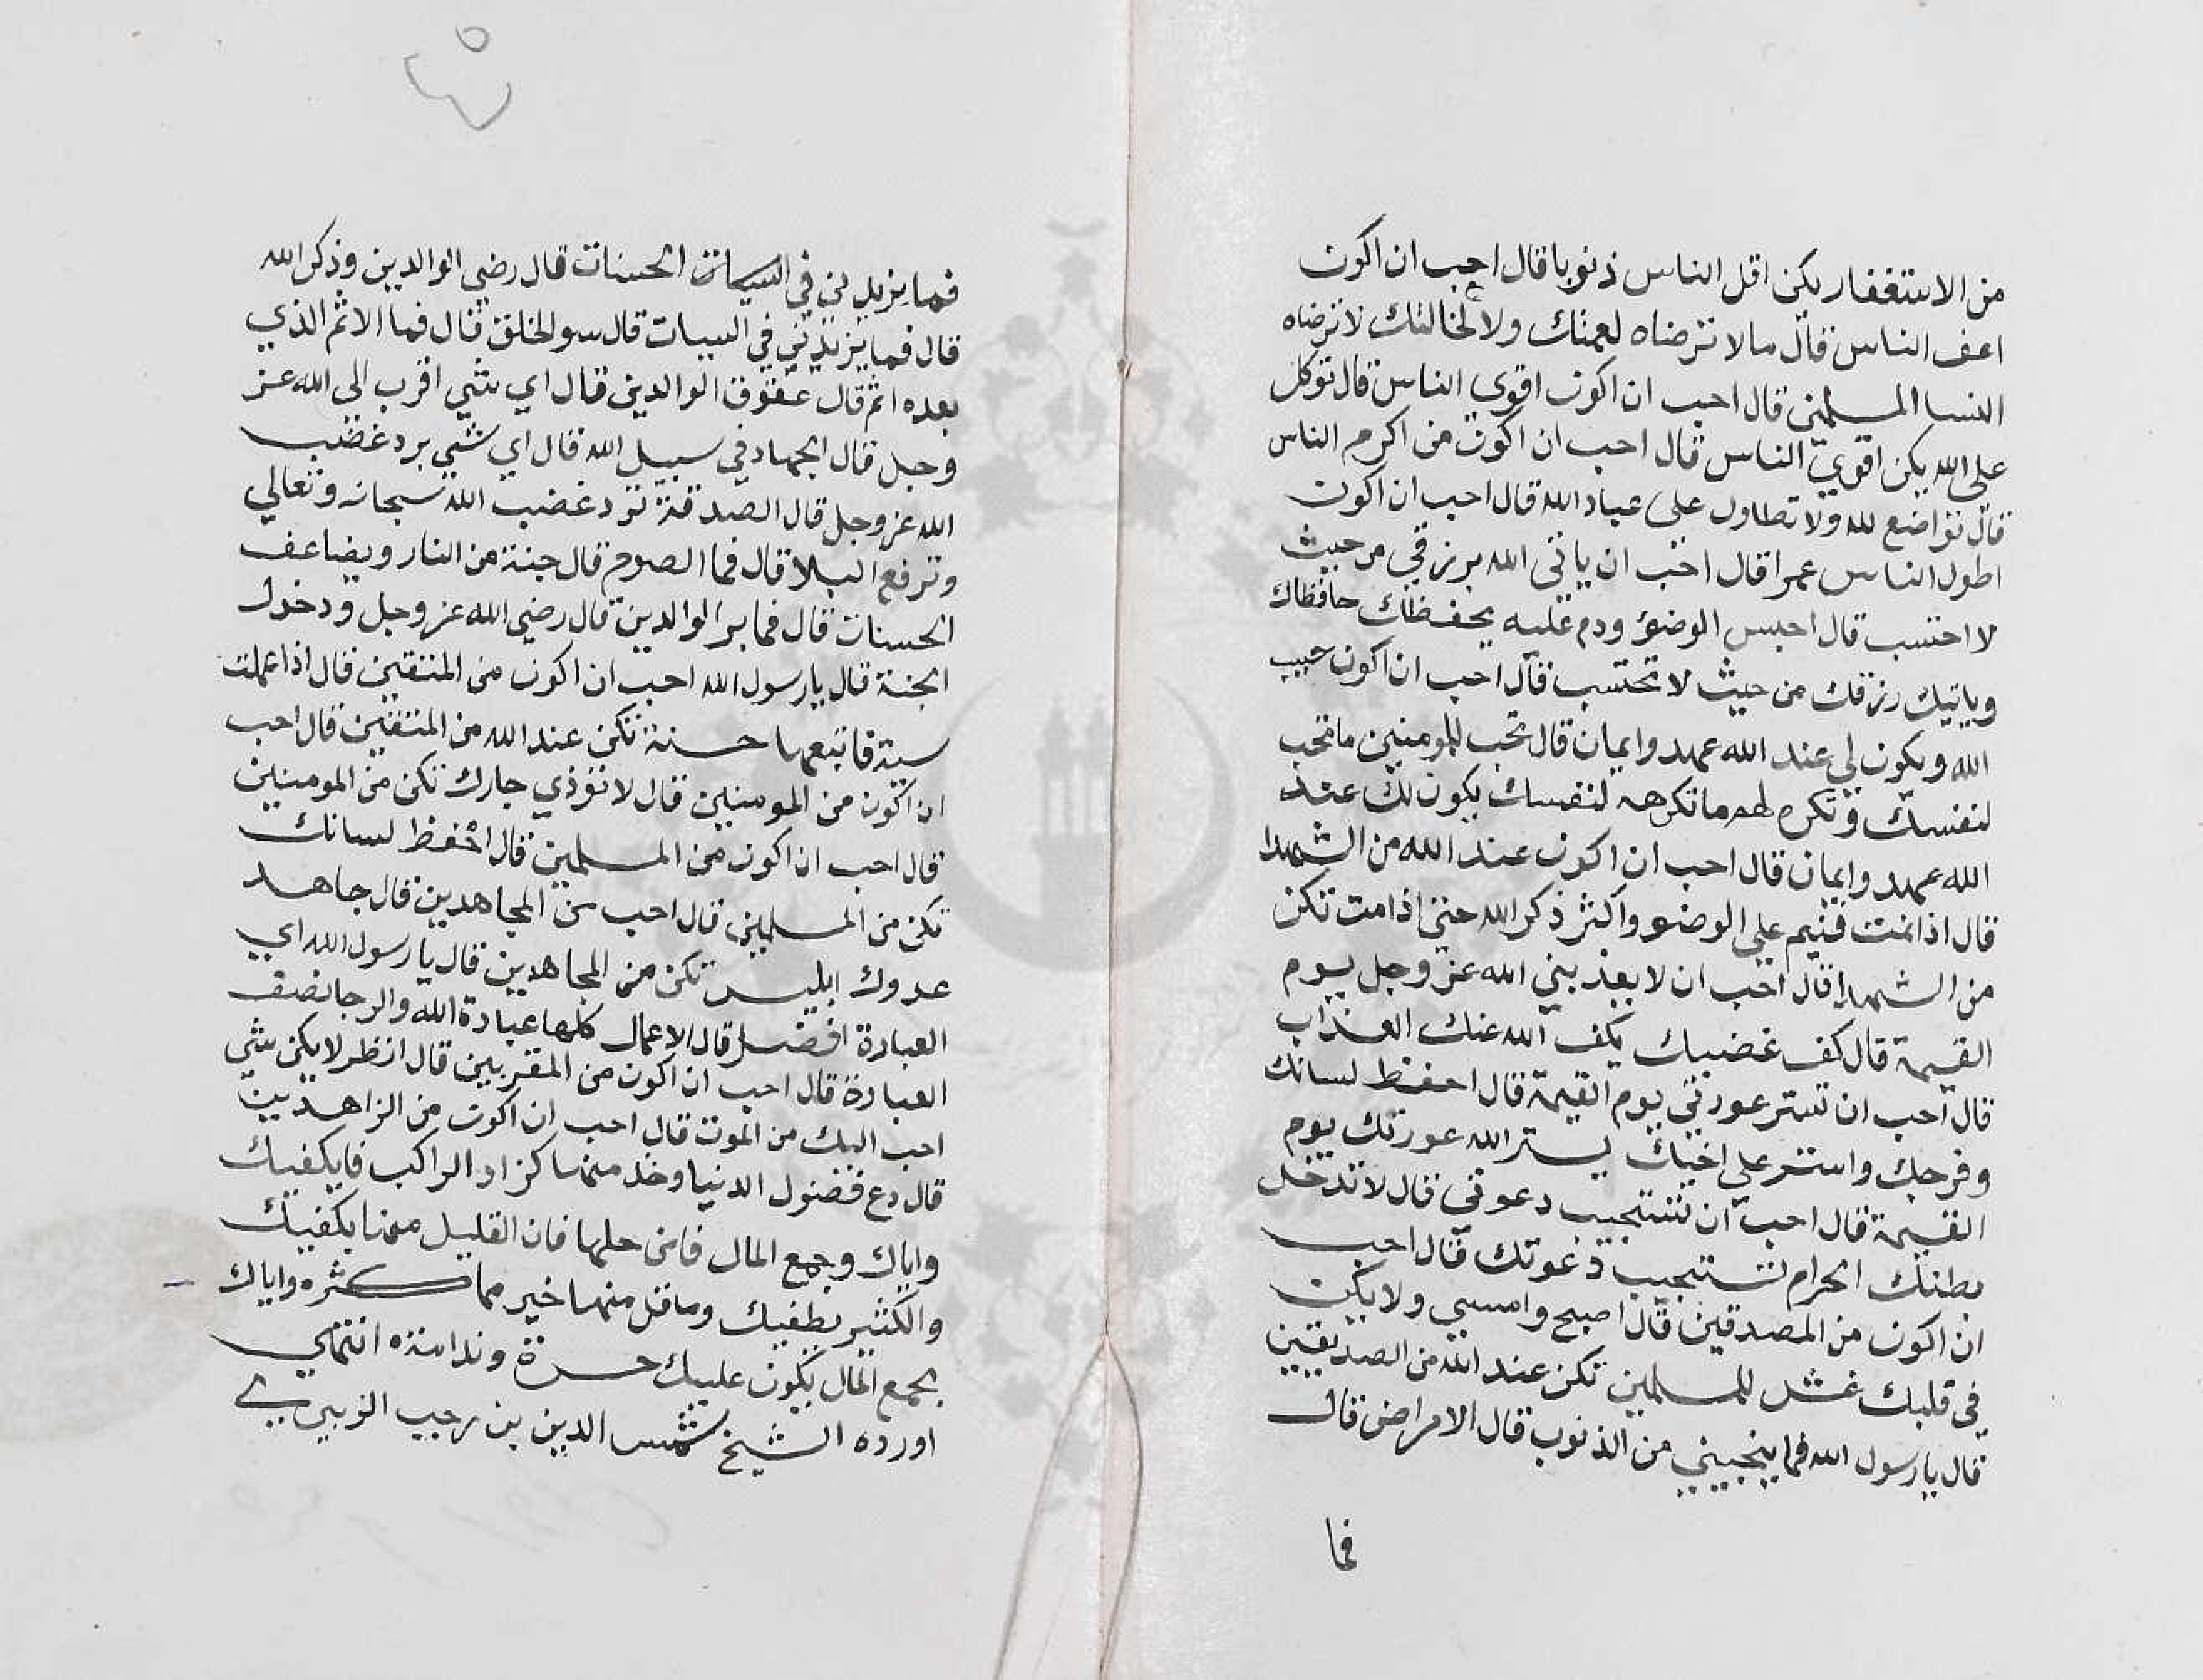 من الاستغفار يكن اقل الناس ذنوبا قال احب ان اكون
اعف الناس قال ما لا ترضاه لعمتك ولا لخالتك لا ترضاه
لنسا المسلمين قال احب ان اكون اقوى الناس قال توكل
على الله يكن اقوى الناس قال احب ان اكون من اكرم الناس
قال تواضع لله ولا تطاول على عباد الله قال احب ان اكون
اطول الناس عمرا قال احب ان ياتى الله برزقي من حيث
لا احتسب قال احبس الوضؤ ودم عليه يحفظك حافظاك
وياتيك رزقك من حيث لا تحتسب قال احب ان اكون حبيب
الله ويكون لي عند الله عهد وايمان قال تحب للمومنين ما تحب
لنفسك وتكره لهم ما تكرهه لنفسك يكون لك عند
الله عهد وايمان قال احب ان اكون عند الله من الشهدا
قال اذا نمت فنيم على الوضو واكثر ذكر الله حتى اذا مت تكن
من الشهدا قال احب ان لا يعذبني الله عز وجل يوم
القيمة قال كف غضبك يكف الله عنك العذاب
قال احب ان تستر عورتي يوم القيمة قال احفظ لسانك
وفرجك واستر على اخيك يستر الله عورتك يوم
القيمة قال احب ان تستجيب دعوتى قال لا تدخل
بطنك الحرام تستجيب دعوتك قال احب
ان اكون من المصدقين قال اصبح وامسي ولا يكن
في قلبك غش للمسلمين تكن عند الله من الصديقين
قال يا رسول الله فما ينجيني من الذنوب قال الامراض قال
فما
فما يزيدني في السيات الحسنات قال رضى الوالدين وذكر الله
قال فما يزيدني في السيات قال سو الخلق قال فما الاثم الذي
بعده اثم قال عقوق الوالدين قال اي شي اقرب الى الله عز
وجل قال الجهاد في سبيل الله قال اي شي يرد غضب
الله عز وجل قال الصدقة ترد غضب الله سبحانه وتعالى
وترفع البلا قال فما الصوم قال جنة من النار ويضاعف
الحسنات قال فما بر الوالدين قال رضى الله عز وجل ودخول
الجنة قال يا رسول الله احب ان اكون من المتقين قال اذا عملت
سية فاتبعها حسنة تكن عند الله من المتقين قال احب
ان اكون من المومنين قال لا توذي جارك تكن من المومنين
قال احب ان اكون من المسلمين قال احفظ لسانك
تكن من المسلمين قال احب من المجاهدين قال جاهد
عدوك ابليس تكن من المجاهدين قال يا رسول الله اي
العبادة افضل قال الاعمال كلها عبادة الله والرجا نصف
العبادة قال احب ان اكون من المقربين قال انظر لا يكن شي
احب اليك من الموت قال احب ان اكون من الزاهدين
قال دع فضول الدنيا وخذ منها كزاد الراكب فايكفيك
واياك وجمع المال فاين حلها فان القليل منها يكفيك
والكثير يطغيك وما قل منها خير مما كثره واياك
بجمع المال يكون عليك حسرة وندامتة انتهى
اورده الشيخ شمس الدين بن رجب الزبيري